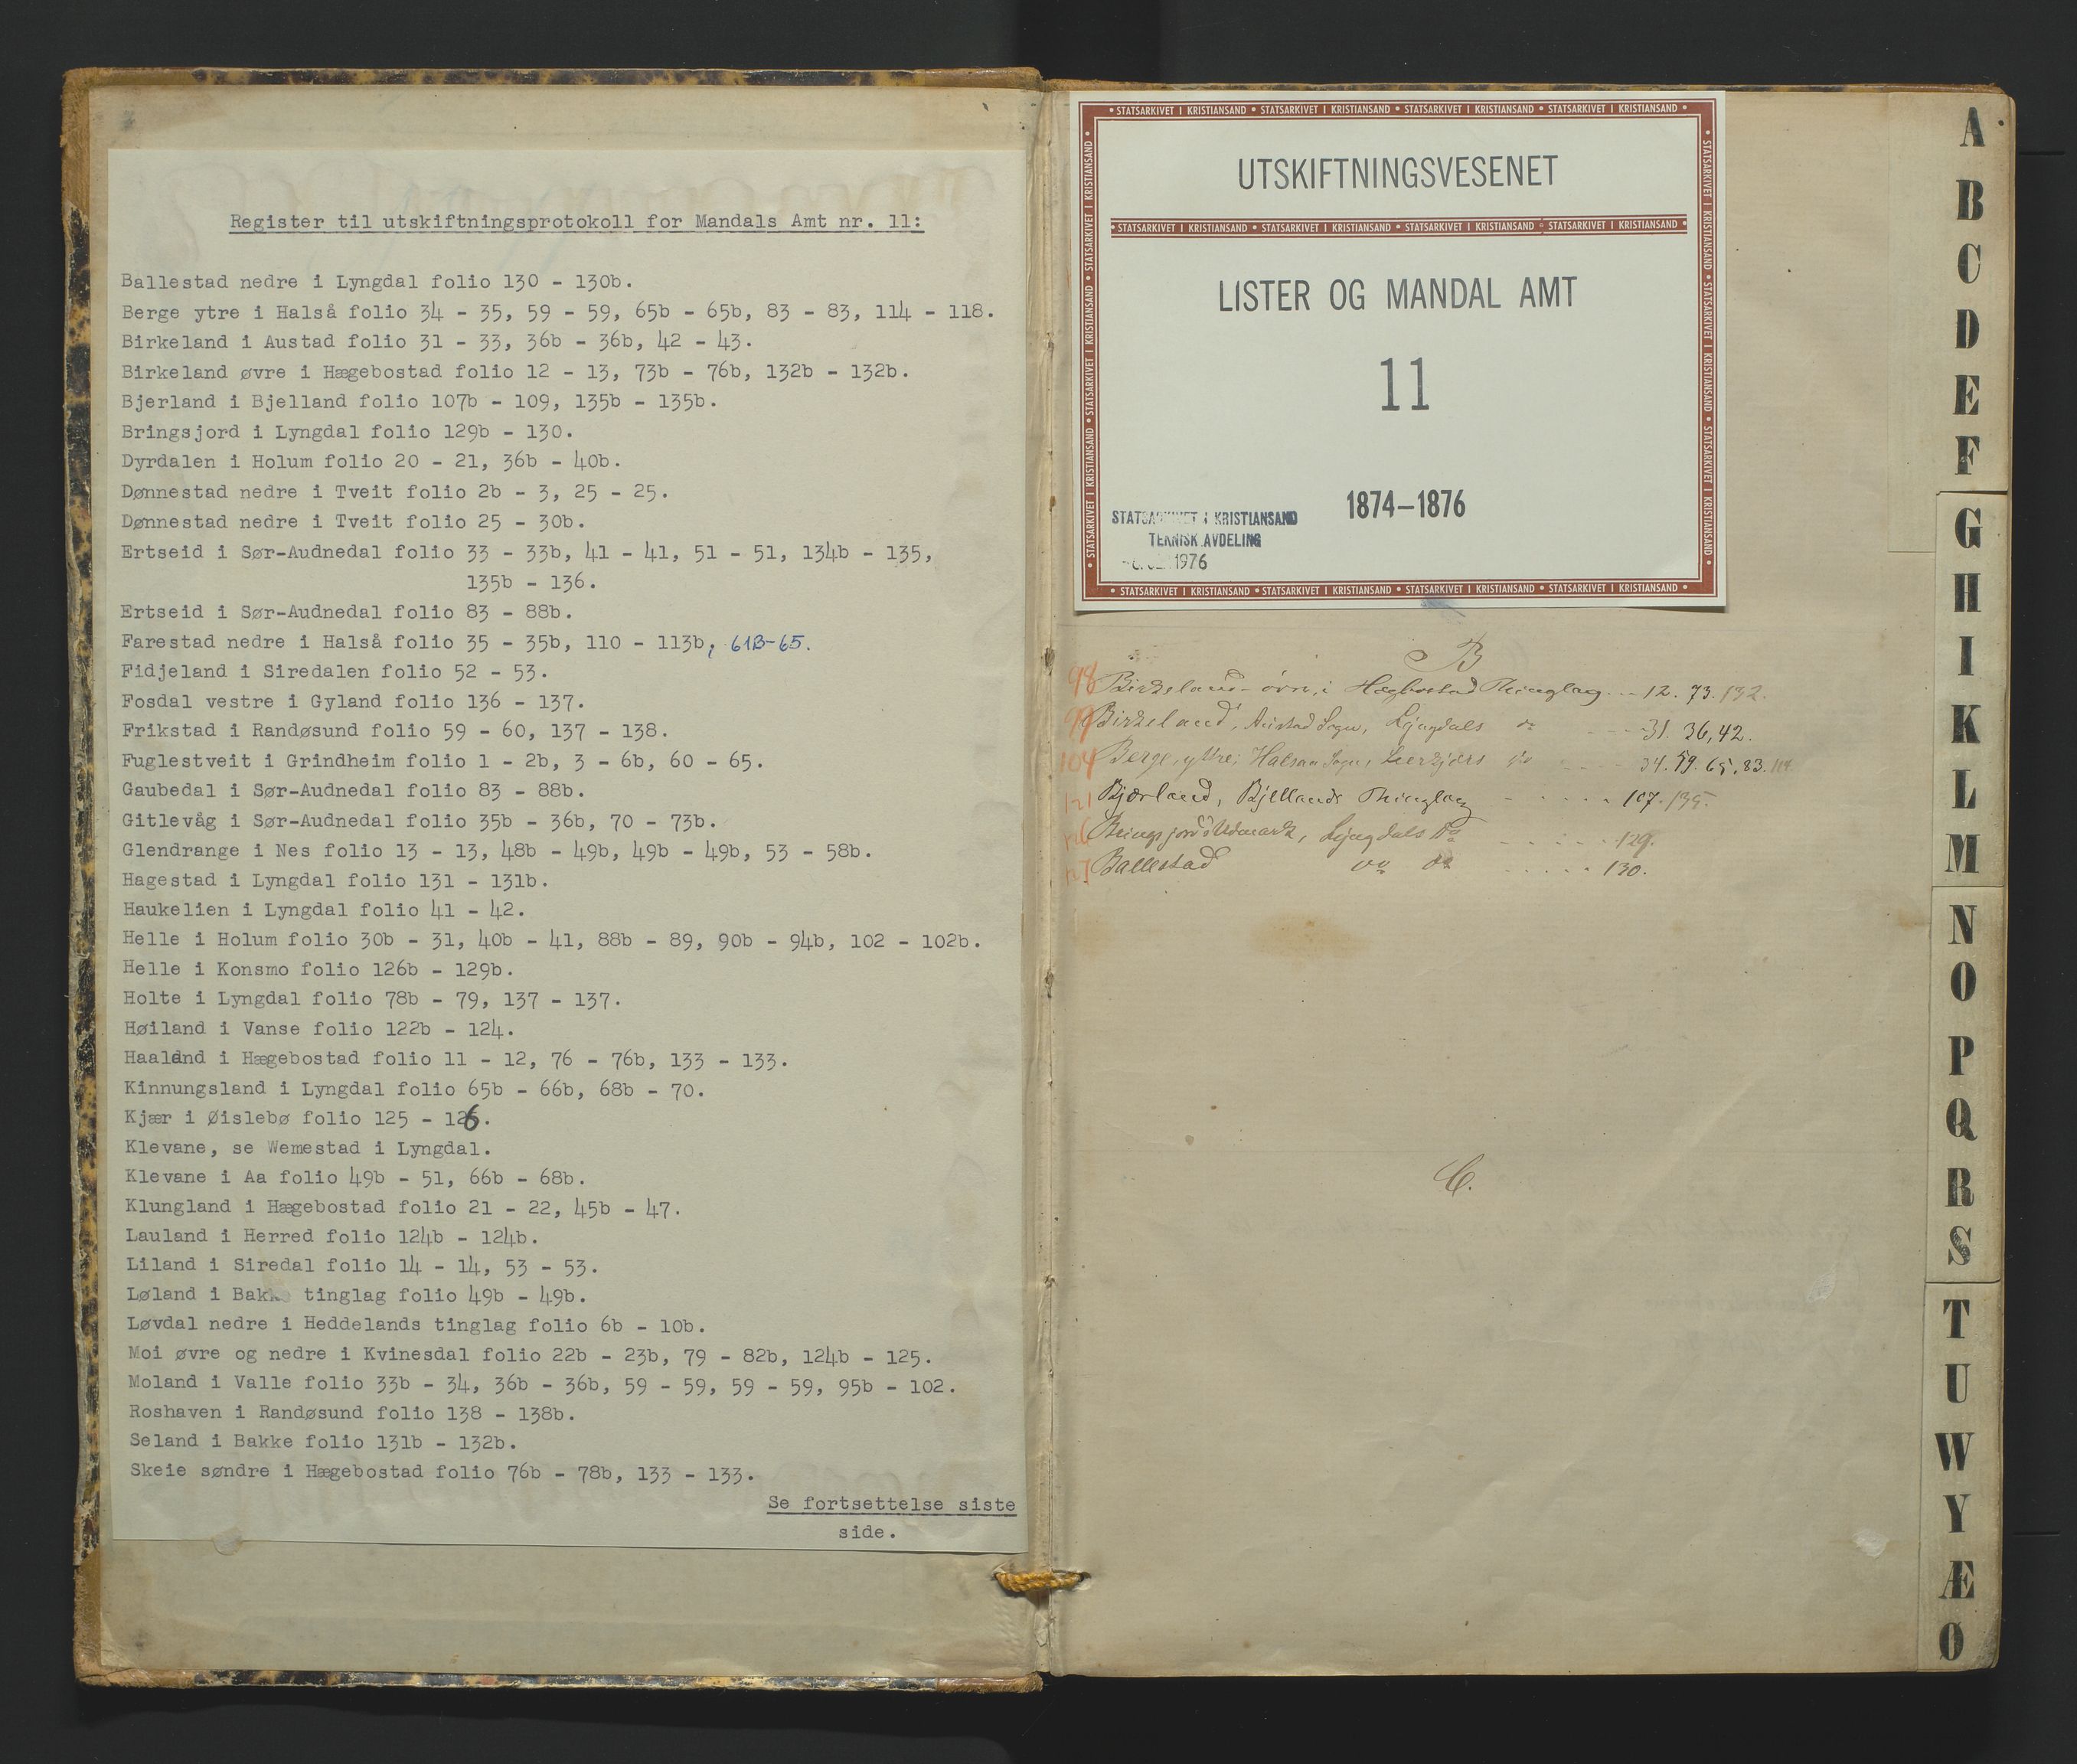 Register til utskiftningsprotokoll for Mandals Amt nr. 11:
Ballestad nedre i Lyngdal folio 130 - 130b.
Berge ytre i Halså folio 34 - 35, 59 - 59, 65b - 65b, 83 - 83, 114 - 118.
Birkeland i Austad folio 31 - 33, 36b - 36b, 42 - 43.
Birkeland øvre i Hægebostad folio 12 - 13, 73b - 76b, 132b - 132b.
Bjerland i Bjelland folio 107b - 109, 135b - 135b.
Bringsjord i Lyngdal folio 129b - 130.
Dyrdalen i Holum folio 20 - 21, 36b - 40b.
Dønnestad nedre i Tveit folio 2b - 3, 25 - 25.
Dønnestad nedre i Tveit folio 25 - 30b.
Ertseid i Sør-Audnedal folio 33 - 33b, 41 - 41, 51 - 51, 134b - 135,
135b - 136.
Ertseid i Sør-Audnedal folio 83 - 88b.
Farestad nedre i Halså folio 35 - 35b, 110 - 113b, 61B-65.
Fidjeland i Siredalen folio 52 - 53.
Fosdal vestre i Gyland folio 136 - 137.
Frikstad i Randøsund folio 59 - 60, 137 - 138.
Fuglestveit i Grindheim folio 1 - 2b, 3 - 6b, 60 - 65.
Gaubedal i Sør-Audnedal folio 83 - 88b.
Gitlevåg i Sør-Audnedal folio 35b - 36b, 70 - 73b.
Glendrange i Nes folio 13 - 13, 48b - 49b, 49b - 49b, 53 - 58b.
Hagestad i Lyngdal folio 131 - 131b.
Haukelien i Lyngdal folio 41 - 42.
Helle i Holum folio 30b - 31, 40b - 41, 88b - 89, 90b - 94b, 102 - 102b.
Helle i Konsmo folio 126b - 129b.
Holte i Lyngdal folio 78b - 79, 137 - 137.
Høiland i Vanse folio 122b - 124.
Haaland i Hægebostad folio 11 - 12, 76 - 76b, 133 - 133.
Kinnungsland i Lyngdal folio 65b - 66b, 68b - 70.
Kjær i Øislebø folio 125 - 126.
Klevane, se Wemestad i Lyngdal.
Klevane i Aa folio 49b - 51, 66b - 68b.
Klungland i Hægebostad folio 21 - 22, 45b - 47.
Lauland i Herred folio 124b - 124b.
Liland i Siredal folio 14 - 14, 53 - 53.
Løland i Bakke tinglag folio 49b - 49b.
Løvdal nedre i Heddelands tinglag folio 6b - 10b.
Moi øvre og nedre i Kvinesdal folio 22b - 23b, 79 - 82b, 124b - 125.
Moland i Valle folio 33b - 34, 36b - 36b, 59 - 59, 59 - 59, 95b - 102.
Roshaven i Randøsund folio 138 - 138b.
Seland i Bakke folio 131b - 132b.
Skeie søndre i Hægebostad folio 76b - 78b, 133 - 133.
Se fortsettelse siste
side.
• STATSARKIVET I KRISTIANSAND • STATSARKIVET I KRISTIANSAND • STATSARKIVET I KRISTIANSAND • STATSARKIVET I KRISTIANSAND •
UTSKIFTNINGSVESENET
• STATSARKIVET I KRISTIANSAND • STATSARKIVET I KRISTIANSAND • STATSARKIVET I KRISTIANSAND • STATSARKIVET I KRISTIANSAND •
LISTER OG MANDAL AMT
11
1874–1876
STATSARKIVET I KRISTIANSAND
TEKNISK AVDELING
1976
• STATSARKIVET I KRISTIANSAND • STATSARKIVET I KRISTIANSAND • STATSARKIVET I KRISTIANSAND • STATSARKIVET I KRISTIANSAND •
B
98 Birkeland øvre, i Hægbostad Thinglag 12. 73. 132.
99 Birkeland, Austad Sogn, Lyngdals do 31. 36, 42.
104 Berge, yttre, Halsaa Sogn, do 34. 59. 65, 83. 114
121 Bjærland, Bjellands Thinglag 107. 135.
126 Bringsjords Udmark, Lyngdals do 129.
127 Ballestad do do 130.
C.
A
B
C
D
E
F
G
H
I
K
L
M
N
O
P
Q
R
S
T
U
W
Y
Æ
Ø